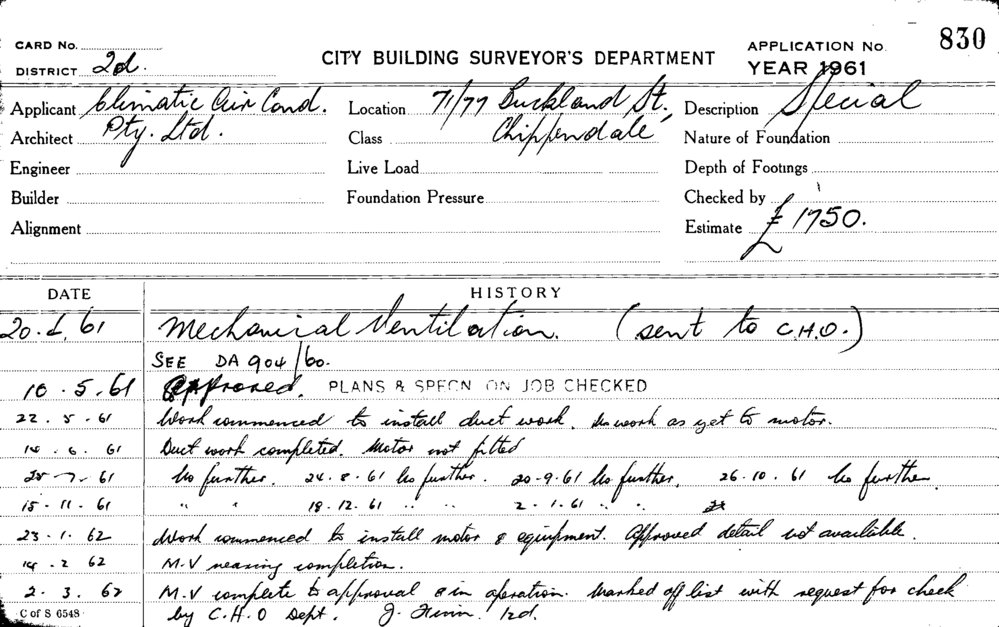 830
CARD No. CITY BUILDING SURVEYOR'S DEPARTMENT APPLICATION No.
DISTRICT 2d. YEAR 1961
Applicant Climatic Air Cond. Location 71/77 Buckland St., Description Special
Architect Pty. Ltd. Class Chippendale Nature of Foundation
Engineer Live Load Depth of Footings
Builder Foundation Pressure Checked by
Alignment Estimate £1750.
DATE HISTORY
20. 61 Mechanical Ventilation. (sent to C.H.O.)
SEE DA 904/60.
10.5.61 Approved. PLANS & SPECN ON JOB CHECKED
22.5.61 Work commenced to install duct work. No work as yet to motor.
14.6.61 Duct work completed. Motor not fitted
7-61 No further. 24.8.61 No further. 20-9.61 No further. 26.10.61 No further
15-11-61 " " 18.12.61 " " 2-1.61 " "
23.1.62 Work commenced to install motor & equipment. Approved detail not available.
14.2 62 M.V nearing completion.
2.3.62 M.V complete to approval & in operation. Marked off list with request for check
C of S 6548 by C.H.O Dept. J.